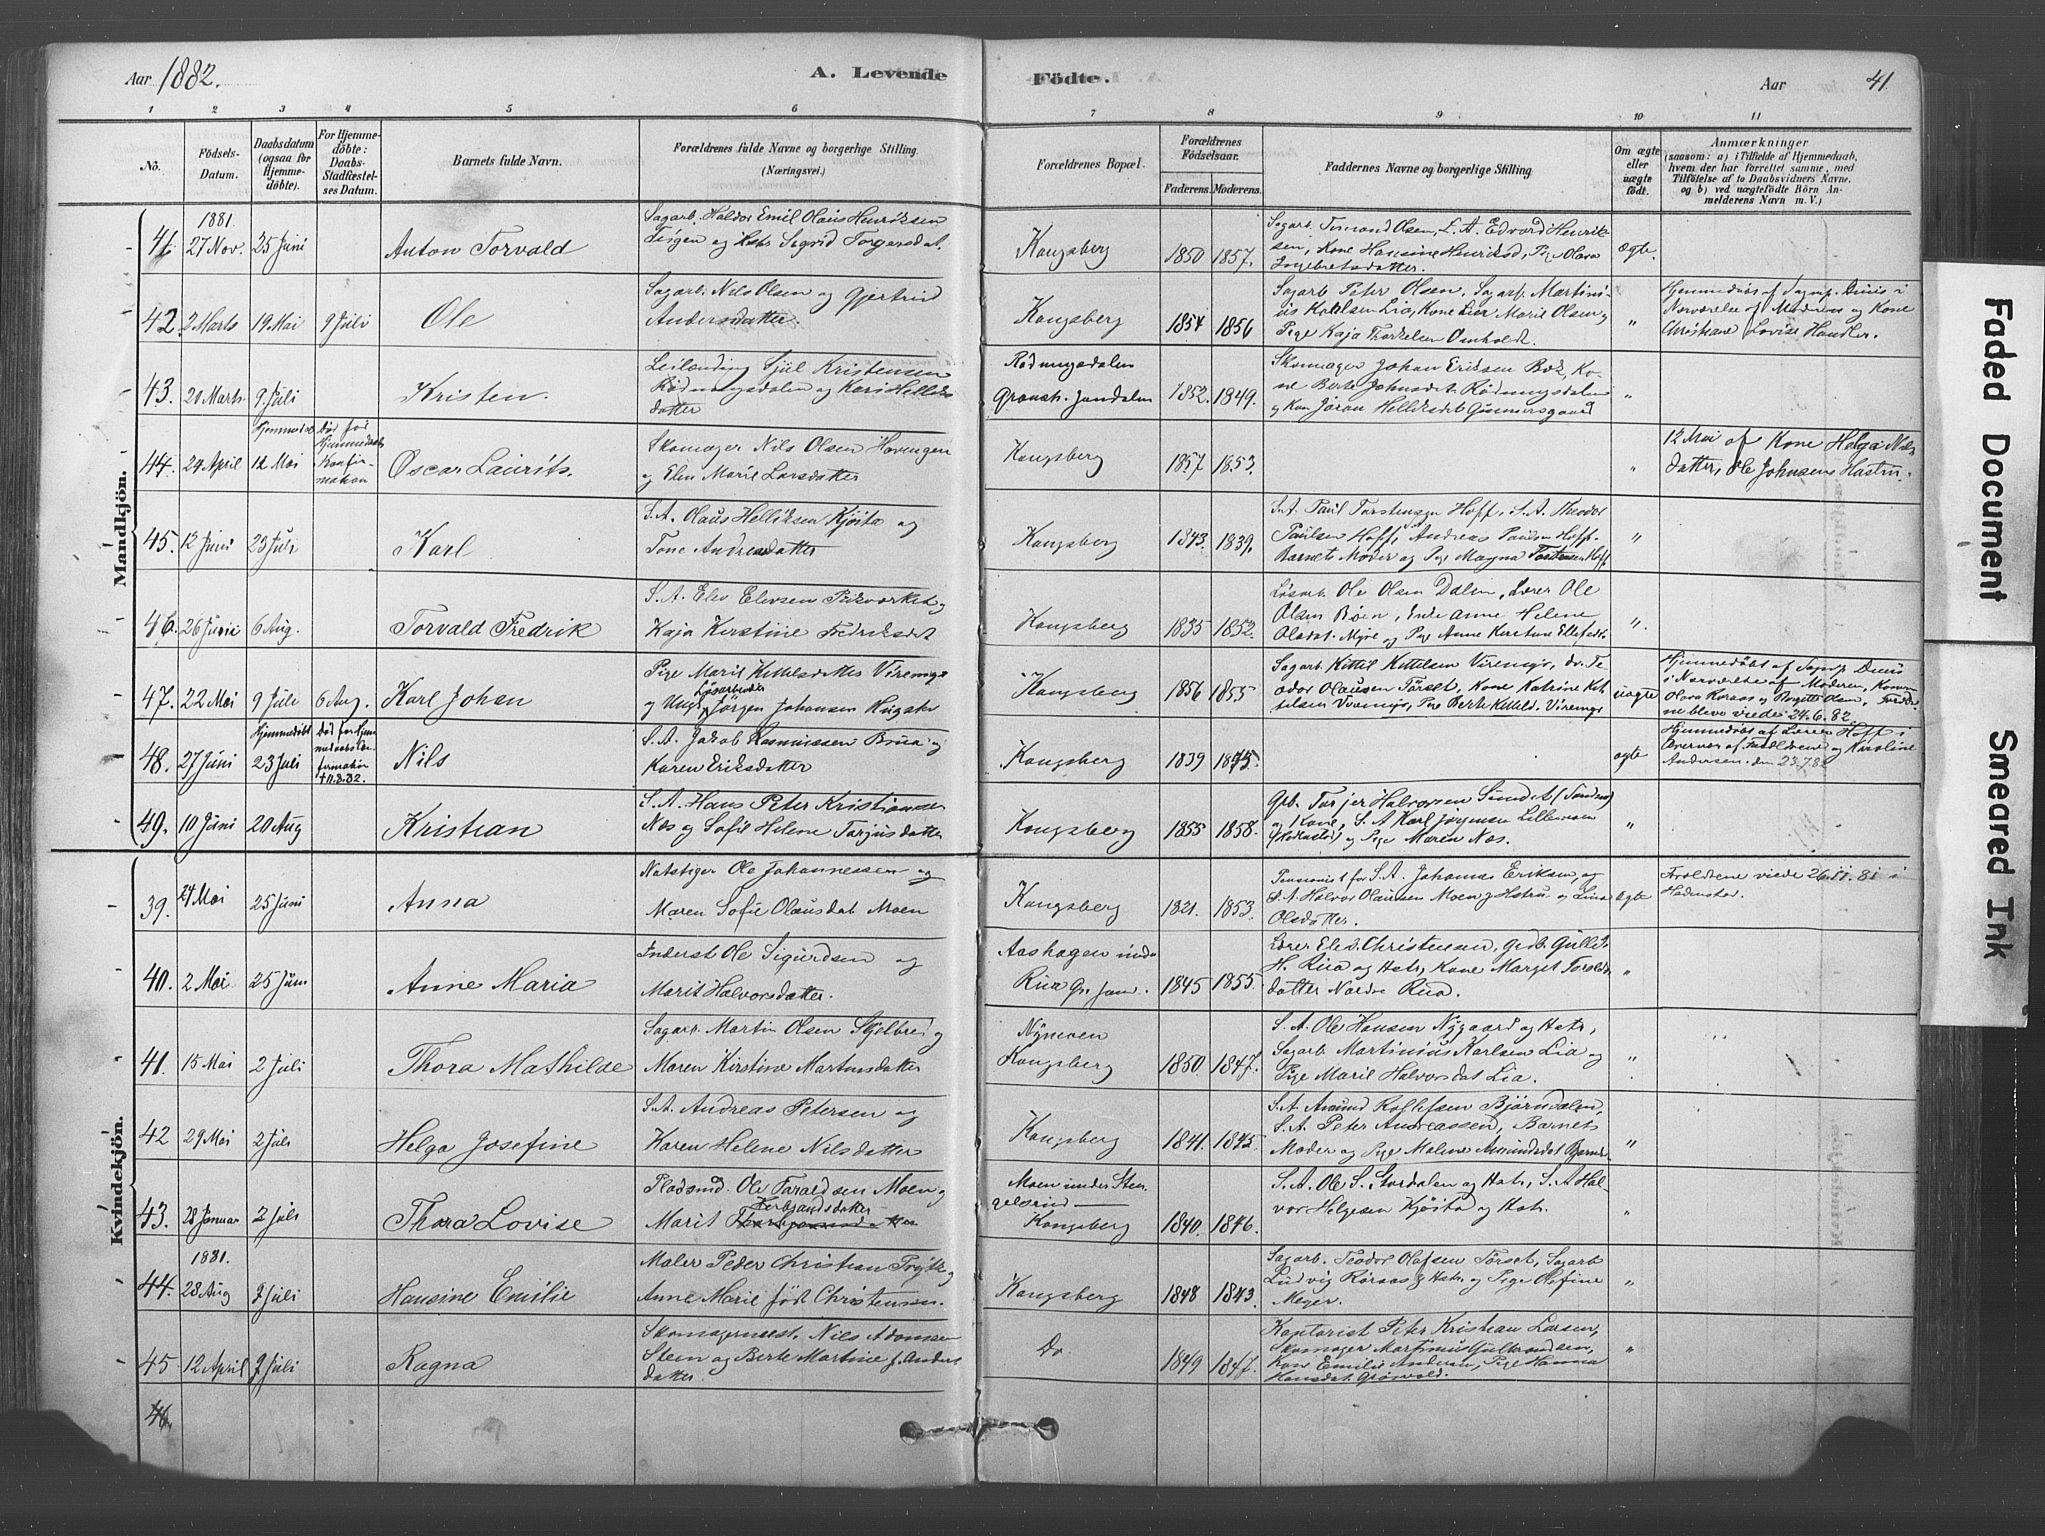 Aar 1882.
A. Levende
Födte.
Aar
41
1 2 3 4 5 6 7 8 9 10 11
No.
Födsels-Datum.
Daabsdatum (ogsaa för Hjemme-döbte).
For Hjemme-döbte: Daabs-Stadfæstel-ses Datum.
Barnets fulde Navn.
Forældrenes fulde Navne og borgerlige Stilling. (Næringsvei.)
Forældrenes Bopæl.
Forældrenes Födselsaar.
Faderens. Moderens.
Faddernes Navne og borgerlige Stilling
Om ægte eller uægte födt.
Anmærkninger
(saasom: a) i Tilfælde af Hjemmedaab, hvem der har forrettet samme, med Tilföielse af to Daabsvidners Navne, og b) ved uægtefödte Börn An-melderens Navn m. V.)
Mandkjön.
1881.
41. 27 Nov. 25 Juni Anton Torvald
Sagarb. Haldor Emil Olaus Henriksen
og Sigrid Torgersdat.
Kongsberg 1850 1857.
Sagarb. Olsen, S. A. Edvard Henrik-
sen, Kone Hansine Henriksd, Pige Olava
Ingebretsdatter.
Ægte.
42. 2 Marts 19 Mai 9 Juli Ole
Sagarb. Nils Olsen og Gjertrud
Andersdatter.
Kongsberg 1854 1856
Sagarb Peter Olsen, Sagarb. Martin-
ius Lia, Kone Marie Olsen og
Pige Kaja Omholdt.
"
Hjemmedöbt af Dius i
Nærværelse af Moderen og Kone
Christiane Lovise Handler.
43. 20 Marts 9 Juli Kristen
Leilænding Sjul Kristensen
Rödmyrsdalen og Kari Helliks
datter
Rödmyrsdalen
Gransh. Jondalen 1852. 1849.
Skomager Johan Eriksen Bæk, Ko-
ne Berte Johnsdat. Rödmyrsdalen
og Kone Jöran Helliksdat Gunnersgaard
"
44. 24 April Hjemmedöbt 12 Mai Död för Hjemmedaabs Konfir-mation Oscar Laurits.
Skomager Nils Olsen Hovengen
og Elen Marie Larsdatter
Kongsberg 1857 1853.
"
12 Mai af Kone Helga Nils
datter, Ole Johnsens Hustru.
45. 12 Juni 23 Juli Karl
S. A. Olaus Helliksen Kjöita og
Tone Andreasdatter
Kongsberg 1843. 1839.
S. A. Paul Torstensen Hoff, S. A. Theodor
Paulsen Hoff, Andreas Paulsen Hoff,
Barnets Moder og Pige Magna Hoff
"
46. 26 Junii 6 Aug. Torvald Fredrik
S. A. Elev Elevsen og
Kaja Kirstine Fredriksdat
Kongsberg 1835 1852.
Lösarb Ole Olsen Dalen, Lærer Ole
Olsen Enke Anne Helene
Olsdat. Myre og Pige Anne Kirstine
".
47. 22 Mai 9 Juli 6 Aug. Karl Johan
Pige Marie Kittelsdatter Viremyr
og Ungk. Lösarbeider Jörgen Johansen
Kongsberg 1856 1855
Sagarb. Kittil Kittilsen Viremyr, do. Te-
odor Olausen Törset, Kone Katrine Kit-
telsen Viremyr, Pige Berte Kittelsd. Viremyr
uægte
Hjemmedöbt af Dius
i Nærværelse af Moderen, Konen
Olava Roraas og Birgitte Olsen, Foreldre-
ne bleve viede 24.6.82.
48. 27 Juni Hjemmedöbt 23 Juli Nils
S. A. Jakob Rasmussen Brua og
Karen Eriksdatter
Kongsberg 1839 1845.
ægte
Hjemmedöbt af Lærer Hoff i
Overvær af Forældrene og Karoline
Andersen. den 23.7.82
49. 10 Juni 20 Aug Kristian
S. A. Hans Peter Kristiansen
Næs og Sofie Helene Tarjusdatter
Kongsberg 1855 1858.
Grb. Tarjer Halvorsen Sundet
og Kone, S. A Karl Jörgensen
og Pige Maren Næs.
"
Kvindekjön.
39. 24 Mai 25 Juni Anna
Natstiger Ole Johannessen og
Maren Sofie Olausdat Moen
Kongsberg 1821. 1853.
Pensionist for S. A. Johannes Eriksen, og
S A Halvor Olausen Moen og Hstru og Lina
Olsdatter.
Ægte
Foreldrene viede 26.11.81 i
40. 2 Mai 25 Juni Anne Maria
Inderst Ole Sigurdsen og
Marit Halvorsdatter.
Aashagen under
Rua Gr. Jon. 1845 1855.
Lærer Elev Christensen, Grdb. Gullik
H. Rua og Hstr, Kone Margit Torolds
datter Nordre Rua.
"
41. 15 Mai 2 Juli Thora Mathilde
Sagarb. Martin Olsen Skjelbred og
Maren Kirstine Martinsdatter
Nymoen
Kongsberg 1850 1847.
S. A. Ole Hansen Nygaard og Hstr,
Sagarb. Martinius Karlsen Lia og
Pige Marie Halvorsdat Lia.
"
42 29 Mai 2 Juli Helga Josefine
S. A. Andreas Petersen og
Karen Helene Nilsdatter
Kongsberg 1841. 1845.
S. A. Amund Björndalen,
S. A. Peter Andreassen, Barnets
Moder og Pige Malene Amundsdat
"
43. 28 Januar 2 Juli Thora Lovise
Pladsmd. Ole Taraldsen Moen og
Marit Herbjörnsdatter
Moen under Sten-
gelsrud
Kongsberg 1840. 1846.
S. A. Ole S. Stordalen og Hstr, S. A Hal-
vor Helgesen Kjöita og Hstr.
"
1881.
44. 28 Aug 2 Juli Hansine Emilie
Maler Peder Christian og
Anne Marie födt Christensen.
Kongsberg 1848 1843.
Sagarb. Teodor Olafsen Törset, Sagarb
Ludvig Roraas og Hstr og Pige Olefine
Meyer.
"
45 12 April 2 Juli Ragna
Skomagermest. Nils Adamsen
Steen og Berte Martine f. Anders
datter.
Do. 1849 1847.
Kontorist Peter Kristian Larsen,
Skomager Martinus Gulbrandsen,
Kone Emilie Andersen, Pige Hanna
Hansdat. Grönvold.
"
46.
Faded Document
Smeared Ink